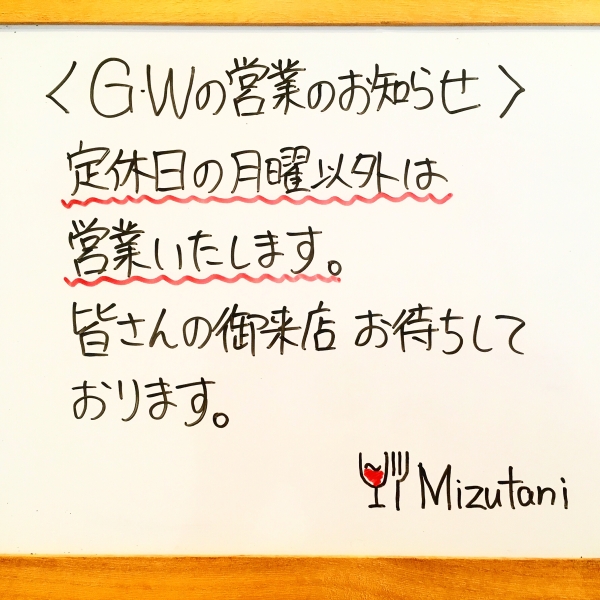 〈G･Wの営業のお知らせ〉
定休日の月曜以外は
営業いたします。
皆さんの御来店 お待ちして
おります。
Mizutani